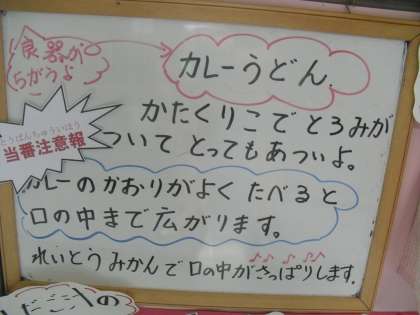 食器が
ちがうよ
カレーうどん.
とうばんちゅういほう
当番注意報
かたくりこで とろみが
ついて とってもあついよ。
カレーのかおりがよく たべると
口の中まで広がります。
れいとうみかんで口の中がさっぱりします.